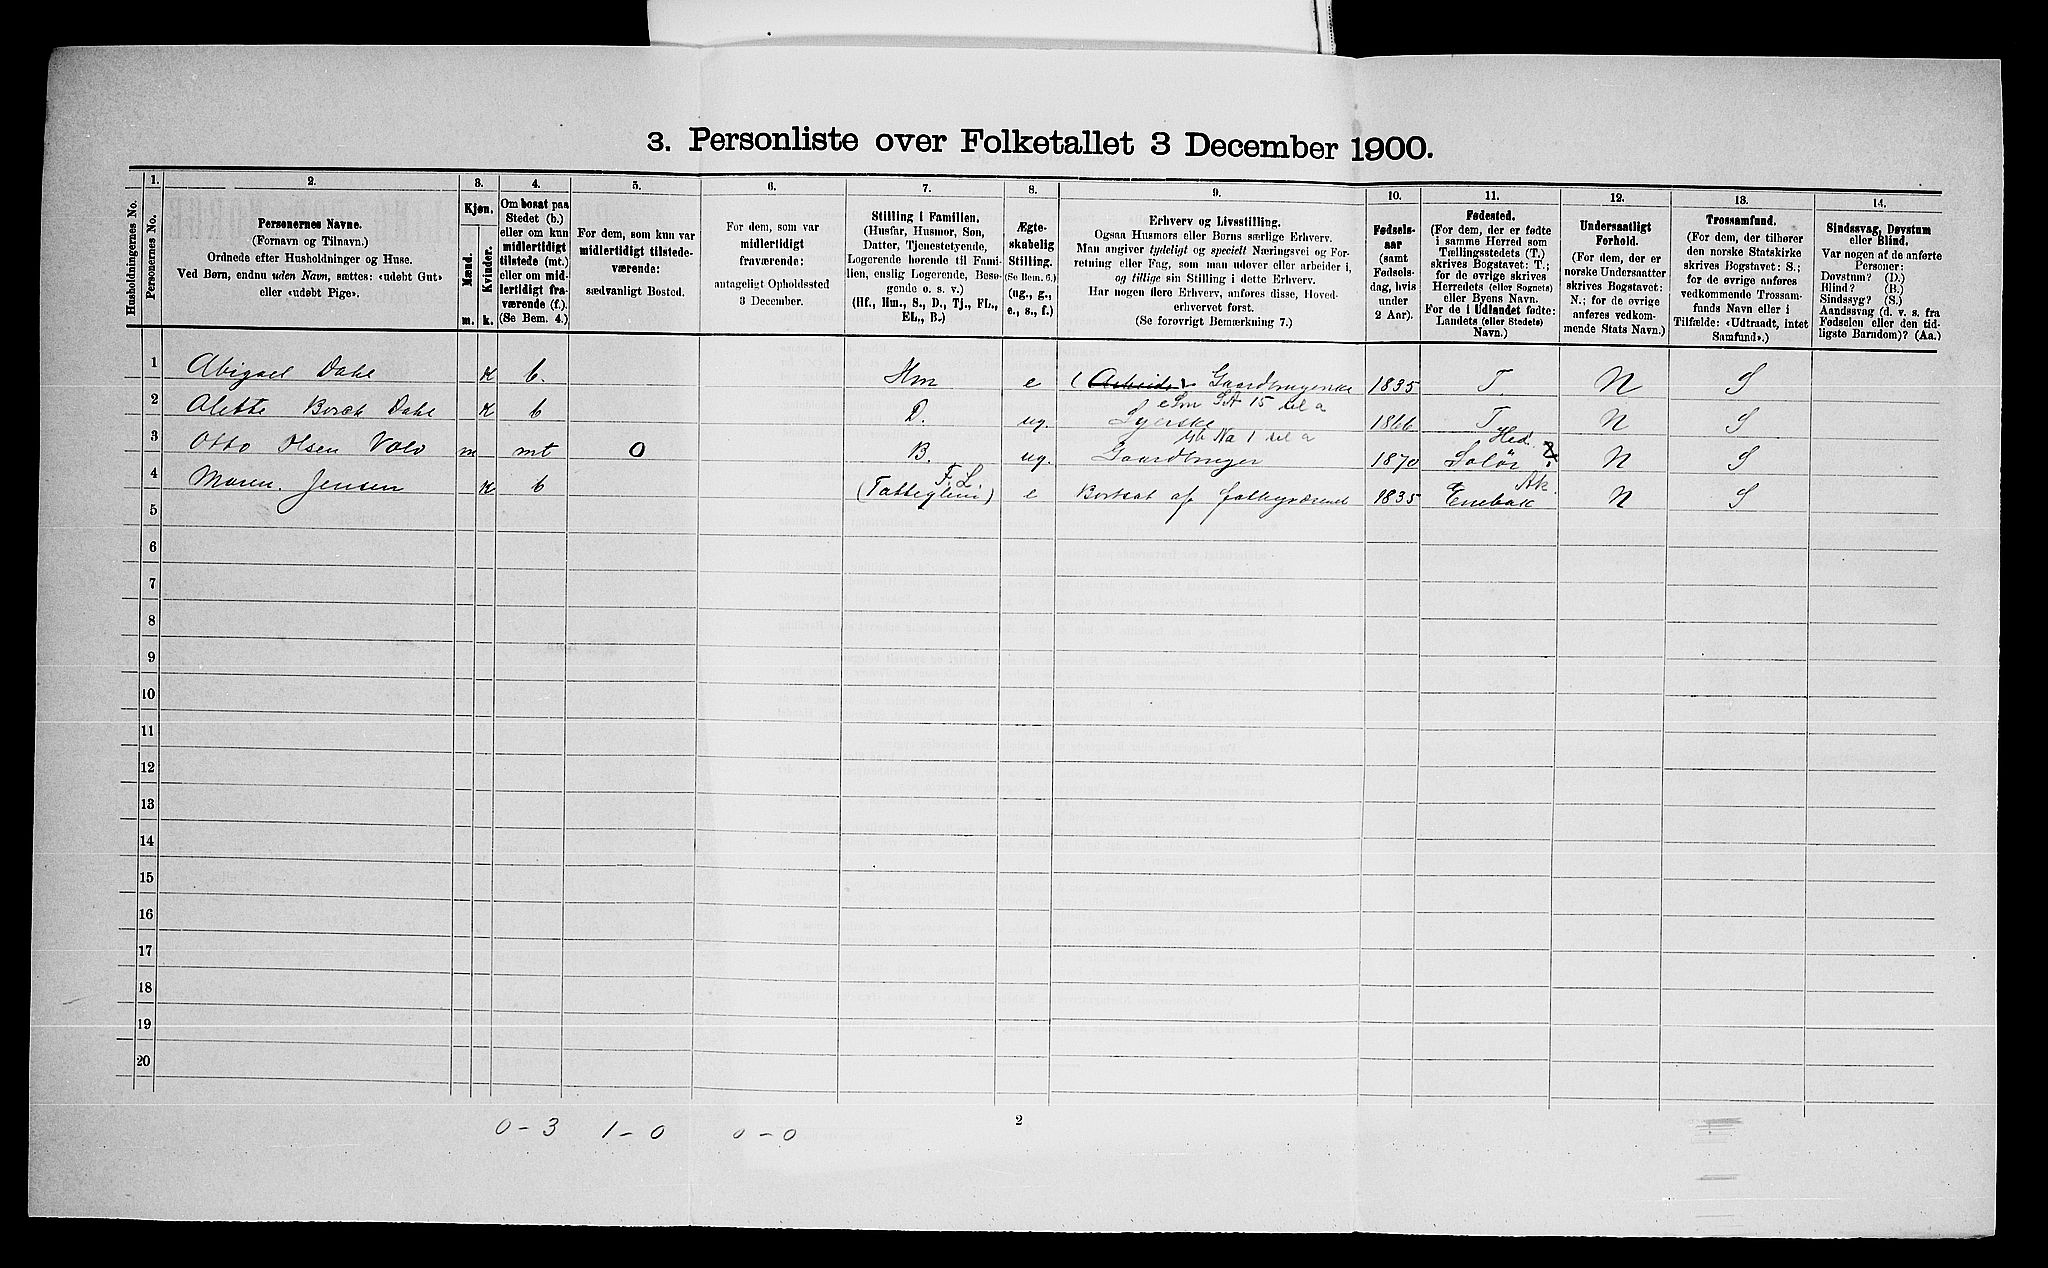 3. Personliste over Folketallet 3 December 1900.
Husholdningernes No.
1. Personernes No.
2.
Personernes Navne.
(Fornavn og Tilnavn.)
Ordnede efter Husholdninger og Huse.
Ved Børn, endnu uden Navn, sættes: «udøbt Gut»
eller «udøbt Pige».
3.
Kjøn.
Mænd.
Kvinder.
m. k.
4.
Om bosat paa
Stedet (b.)
eller om kun
midlertidigt
tilstede (mt.)
eller om mid-
lertidigt fra-
værende (f.).
(Se Bem. 4.)
5.
For dem, som kun var
midlertidigt tilstede-
værende:
sædvanligt Bosted.
6.
For dem, som var
midlertidigt
fraværende:
antageligt Opholdssted
3 December.
7.
Stilling i Familien.
(Husfar, Husmor, Søn,
Datter, Tjenestetyende,
Logerende hørende til Fami-
lien, enslig Logerende, Besø-
gende o. s. v.)
(Hf., Hm., S., D., Tj., FL.,
EL., B.)
8.
Ægte-
skabelig
Stilling.
(Se Bem. 6.)
(ug., g.,
e., s., f.)
9.
Erhverv og Livsstilling.
Ogsaa Husmors eller Børns særlige Erhverv.
Man angiver tydeligt og specielt Næringsvei og For-
retning eller Fag, som man udøver eller arbeider i,
og tillige sin Stilling i dette Erhverv.
Har nogen flere Erhverv, anføres disse, Hoved-
erhvervet først.
(Se forøvrigt Bemærkning 7.)
10.
Fødsels-
aar
(samt
Fødsels-
dag, hvis
under
2 Aar).
11.
Fødested.
(For dem, der er fødte
i samme Herred som
Tællingsstedets (T.)
skrives Bogstavet: T.;
for de øvrige skrives
Herredets (eller Sognets)
eller Byens Navn.
For de i Udlandet fødte:
Landets (eller Stedets)
Navn.)
12.
Undersaatligt
Forhold.
(For dem, der er
norske Undersaatter
skrives Bogstavet:
N.; for de øvrige
anføres vedkom-
mende Stats Navn.)
13.
Trossamfund.
(For dem, der tilhører
den norske Statskirke
skrives Bogstavet: S.;
for de øvrige anføres
vedkommende Trossam-
funds Navn eller i
Tilfælde: «Udtraadt, intet
Samfund».)
14.
Sindssvag, Døvstum
eller Blind.
Var nogen af de anførte
Personer:
Døvstum? (D.)
Blind? (B.)
Sindssyg? (S.)
Aandssvag (d. v. s. fra
Fødselen eller den tid-
ligste Barndom)? (Aa.)
1 Abigael Dahl k b. Hm e (Arbeids Gaardbrugerske 1835 T. N S
2 Alette Borch Dahl k b D. ug. Syerske 1866 T N S
3 Otto Olsen Vold m mt 0 B. ug. Gaardbruger 1870 Solør Hed. N S
4 Maren Jensen k b F. L (Tatteglim) e Bortsat af 1835 Enebak Ak. N S
5
6
7
8
9
10
11
12
13
14
15
16
17
18
19
20
0 - 3 1 - 0 0 - 0
2